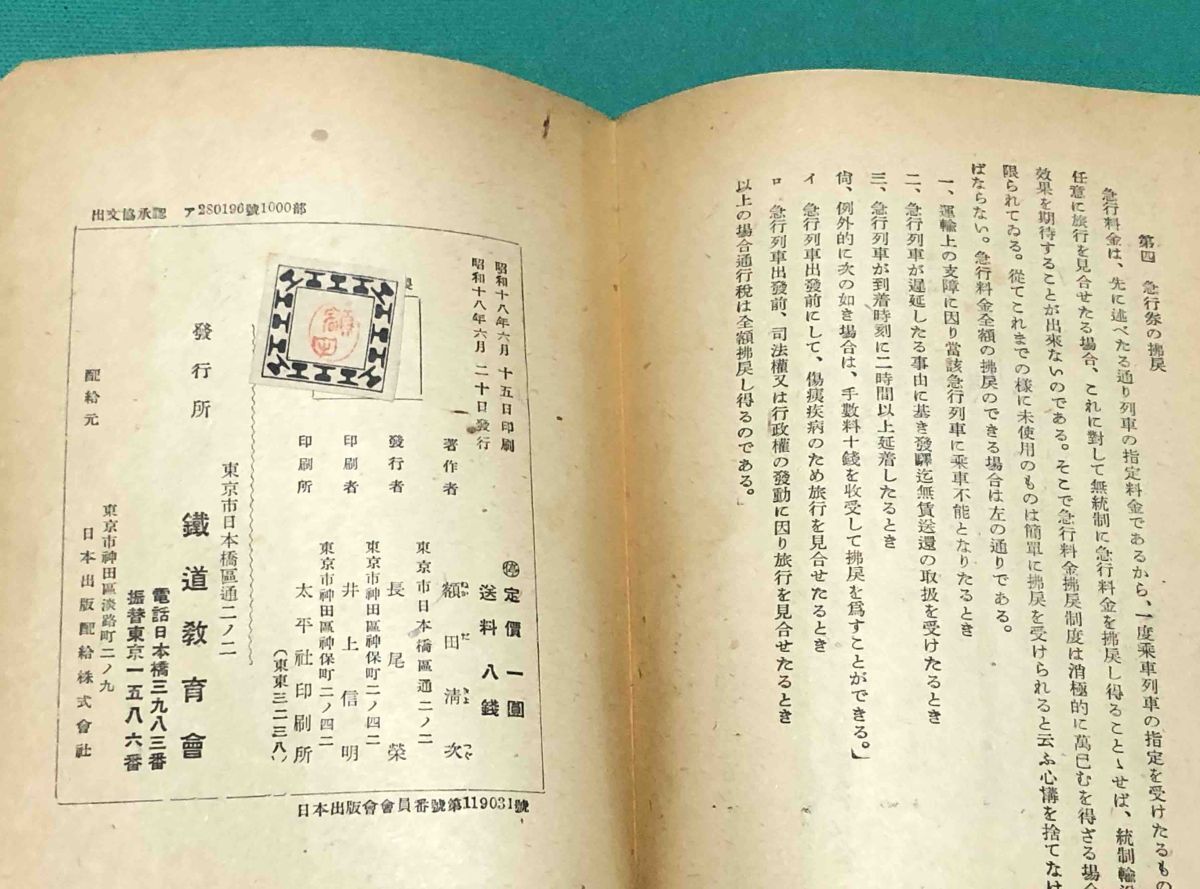 第四　急行券の拂戾
急行料金は、先に述べたる通り列車の指定料金であるから、一度乘車列車の指定を受けたるもの
任意に旅行を見合せたる場合、これに對して無統制に急行料金を拂戾し得ることゝせば、統制輸
效果を期待することが出來ないのである。そこで急行料金拂戾制度は消極的に萬已むを得ざる場合
限られてゐる。從てこれまでの樣に未使用のものは簡單に拂戾を受けられると云ふ心構を捨てなけ
ばならない。急行料金全額の拂戾のできる場合は左の通りである。
一、運輸上の支障に因り當該急行列車に乘車不能となりたるとき
二、急行列車が遲延したる事由に基き發驛迄無賃送還の取扱を受けたるとき
三、急行列車が到着時刻に二時間以上延着したるとき
尙、例外的に次の如き場合は、手數料十錢を收受して拂戾を爲すことができる。」
イ　急行列車出發前にして、傷痍疾病のため旅行を見合せたるとき
ロ　急行列車出發前、司法權又は行政權の發動に因り旅行を見合せたるとき
以上の場合通行稅は全額拂戾し得るのである。」
出文協承認　ア280196號1000部
昭和十八年六月　十五日印刷
昭和十八年六月　二十日發行
㊞定價一圓
送料八錢
著作者　額田淸次
ぬか　だ　きよ　つぐ
東京市日本橋區通二ノ二
發行者　長尾榮
東京市神田區神保町二ノ四二
印刷者　井上信明
東京市神田區神保町二ノ四二
印刷所　太平社印刷所
（東東三二三八）
東京市日本橋區通二ノ二
發行所　鐵道敎育會
電話日本橋三九八三番
振替東京一五八六番
東京市神田區淡路町二ノ九
配給元　日本出版配給株式會社
日本出版會會員番號第119031號